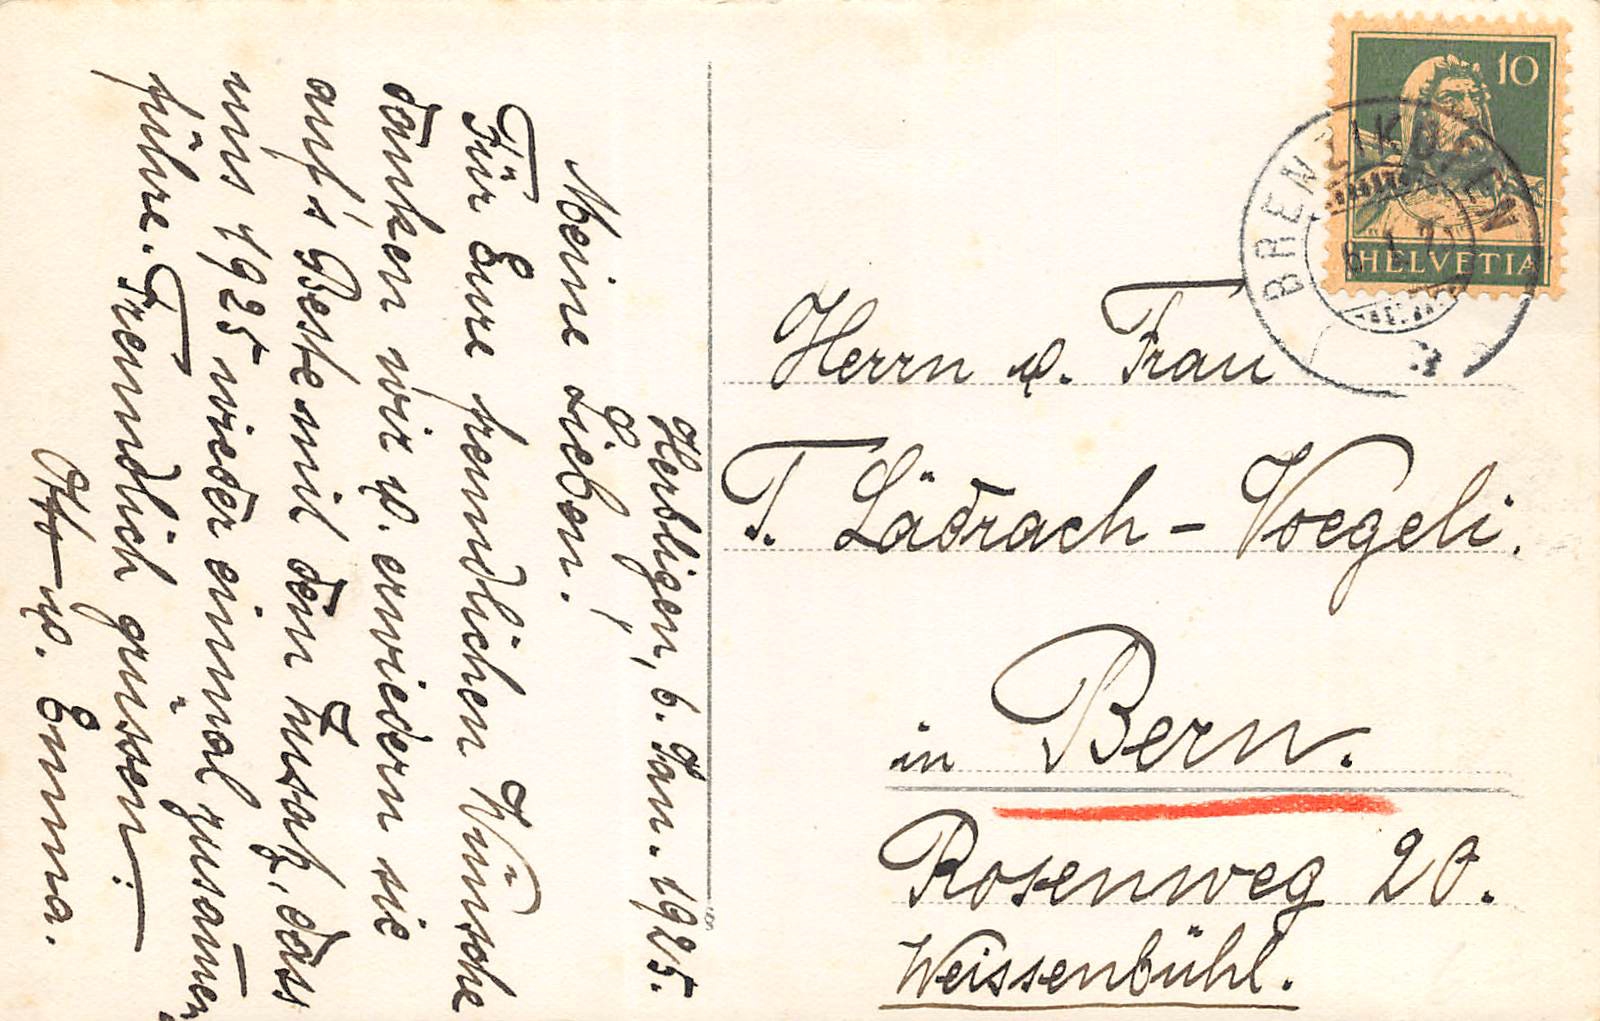 Herbligen, 6. Jan. 1925.
Meine Lieben!
Für Eure freundlichen Wünsche
danken wir u. erwiedern sie
auf's Beste mit dem Zusatz, dass
uns 1925 wieder einmal zusammen
führe. Freundlich grüssen:
u. Emma.
10
HELVETIA
BRENZIKOFEN
Herrn u. Frau
T. Lädrach - Voegeli.
in Bern.
Rosenweg 20.
Weissenbühl.